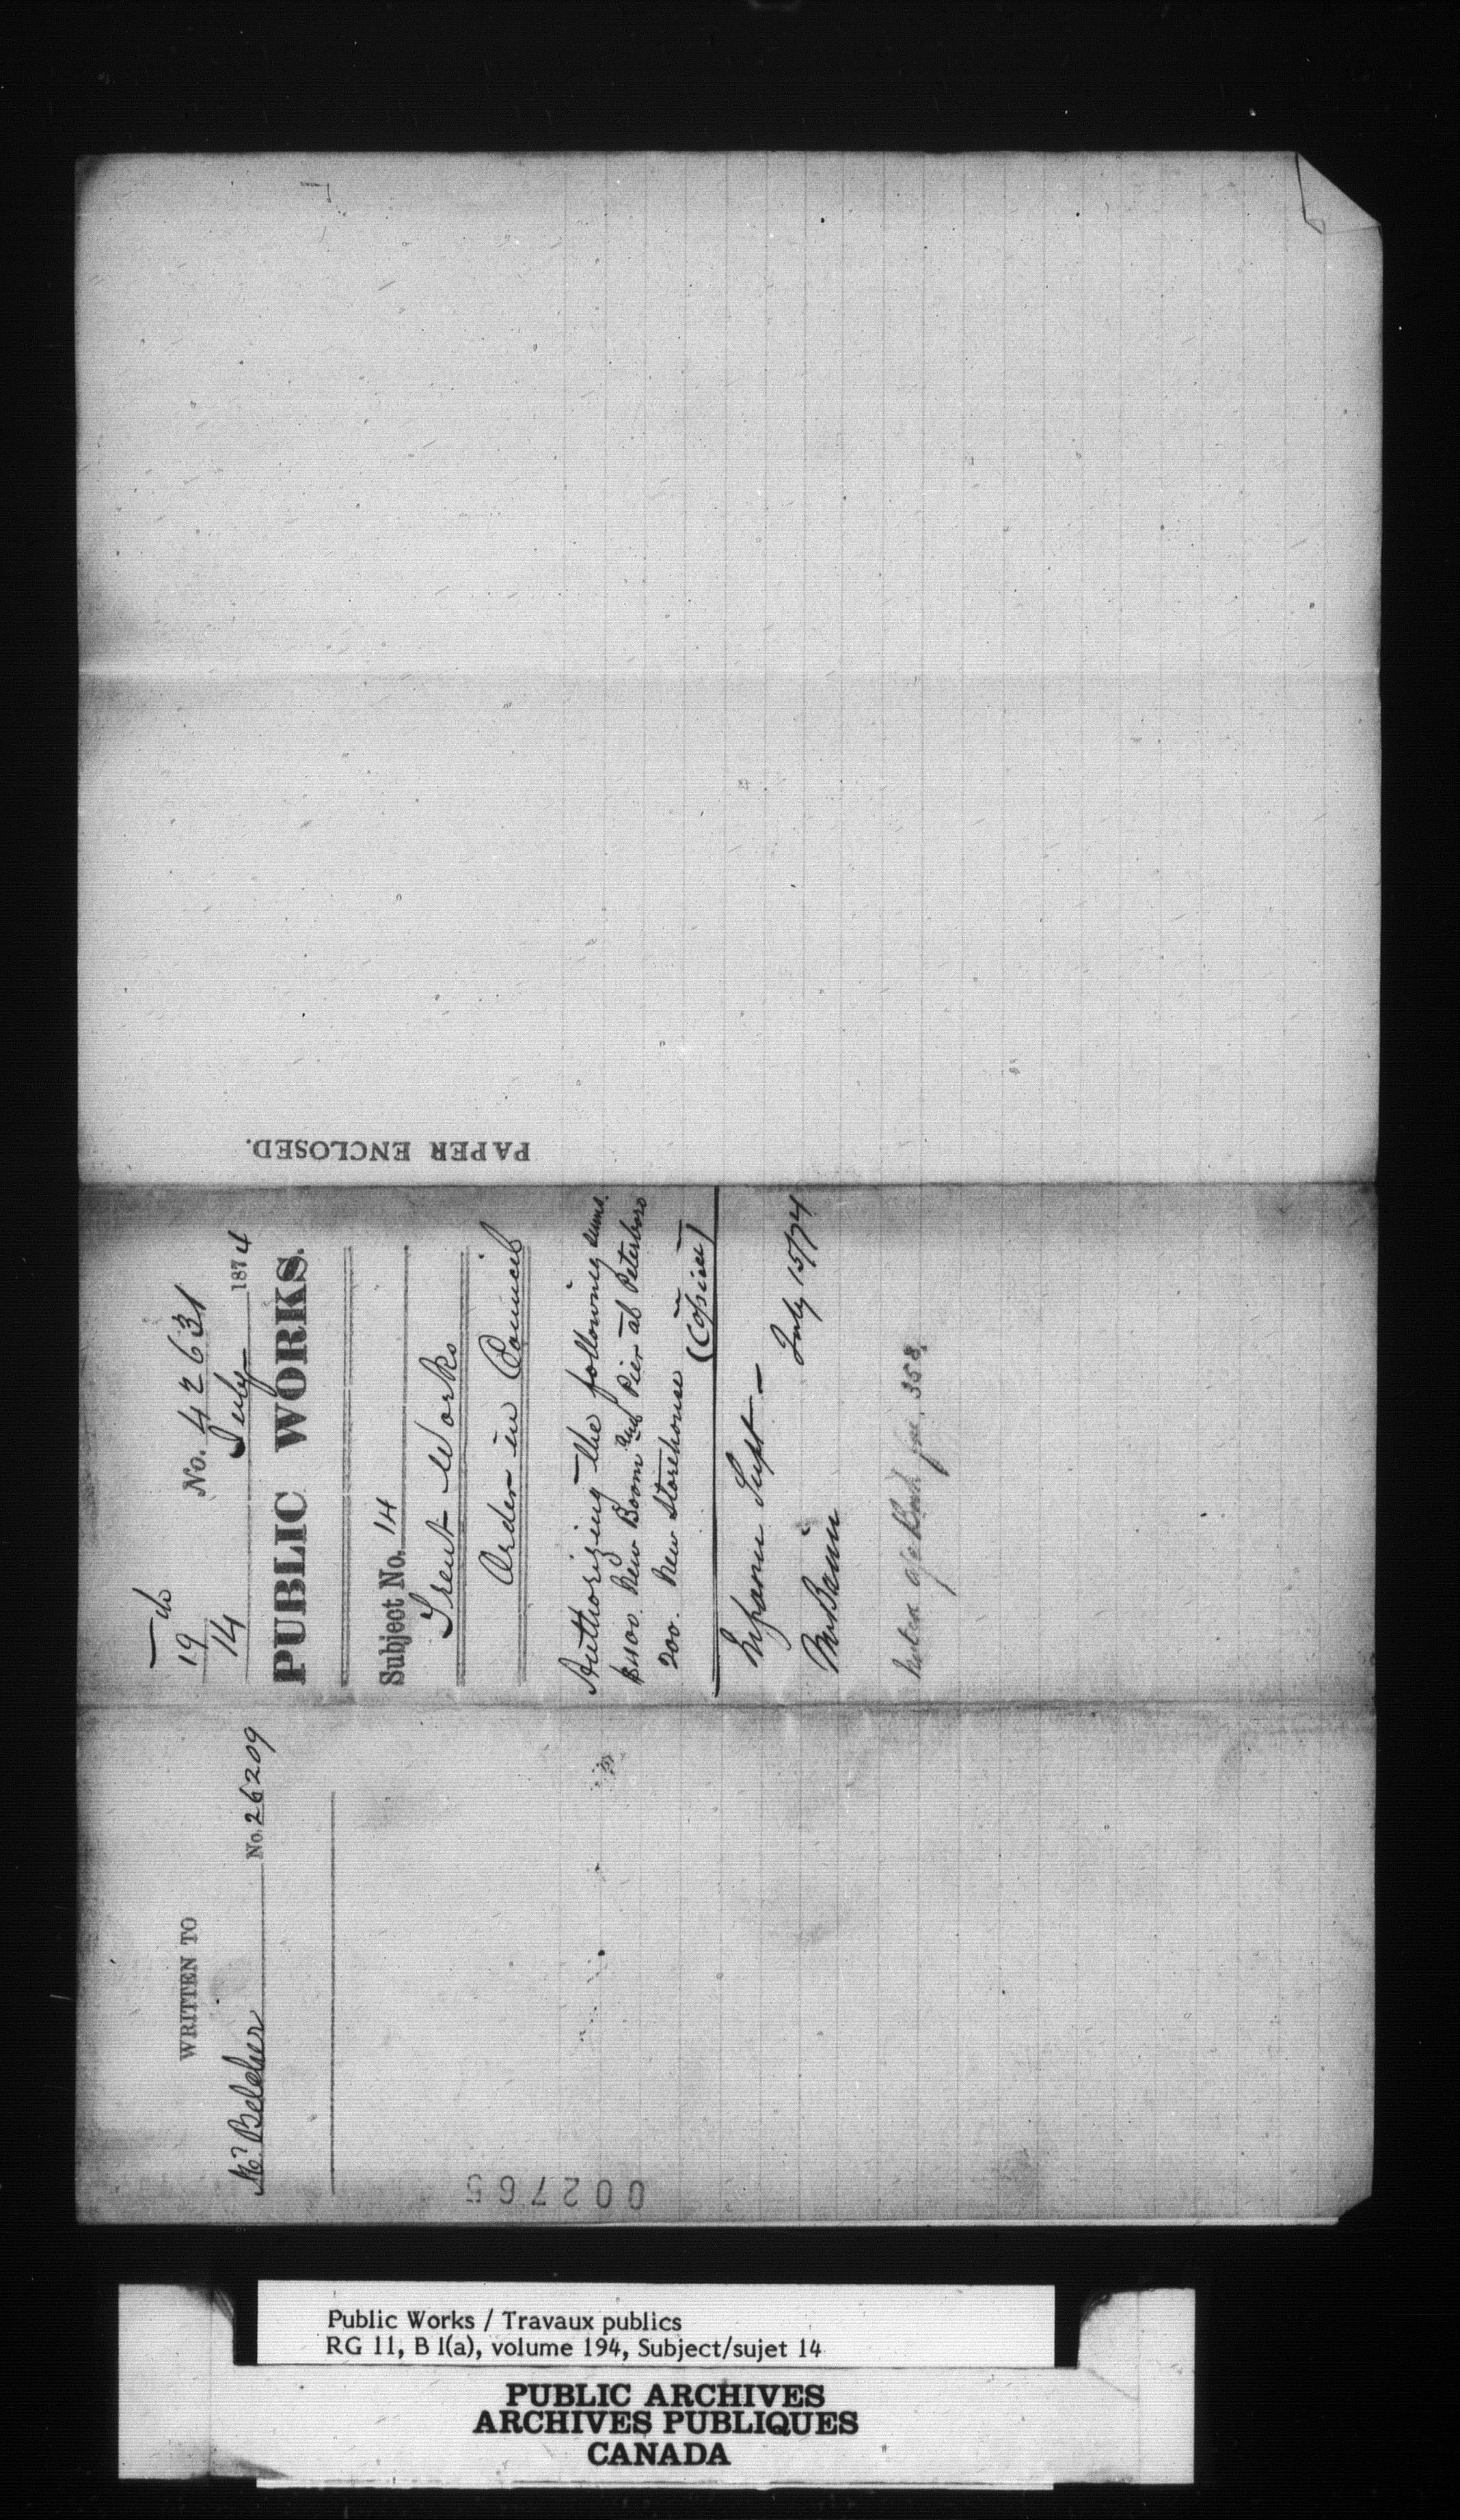 PAPER ENCLOSED.
19
14
No. 42631
July 1874
PUBLIC WORKS.
Subject No. 14
Trent Works
Order in Council
Authorizing the following sums.
$400. New Boom and Pier at Peterboro
200. New Storehouse
(Copies)
Inform Supt —
July 15/74
Mr Bain
358
WRITTEN TO
Mr. Belcher No. 26209
002765
Public Works / Travaux publics
RG 11, B 1(a), volume 194, Subject/sujet 14
PUBLIC ARCHIVES
ARCHIVES PUBLIQUES
CANADA